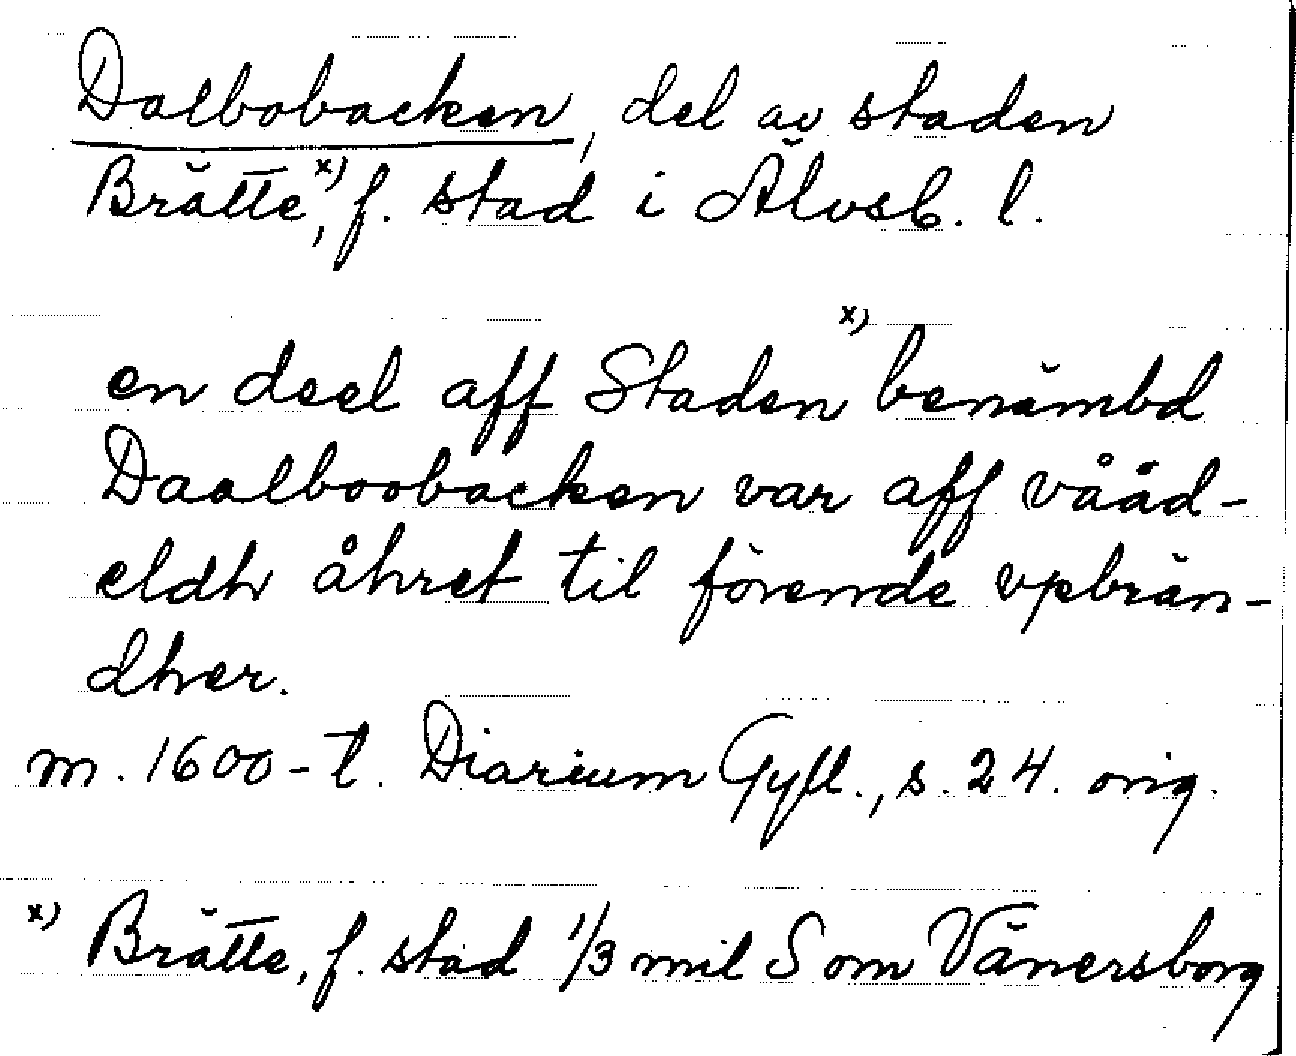 Dalbobacken, del av staden
Brätte,x) f. stad i Älvsb. l.
en deel aff Staden x) benämbd
Daalboobacken var aff vååd-
eldh åhret til förende vpbrän-
dher.
m. 1600-t. Diarium Gyll., s. 24. orig.
x) Brätte, f. stad 1/3 mil S om Vänersborg